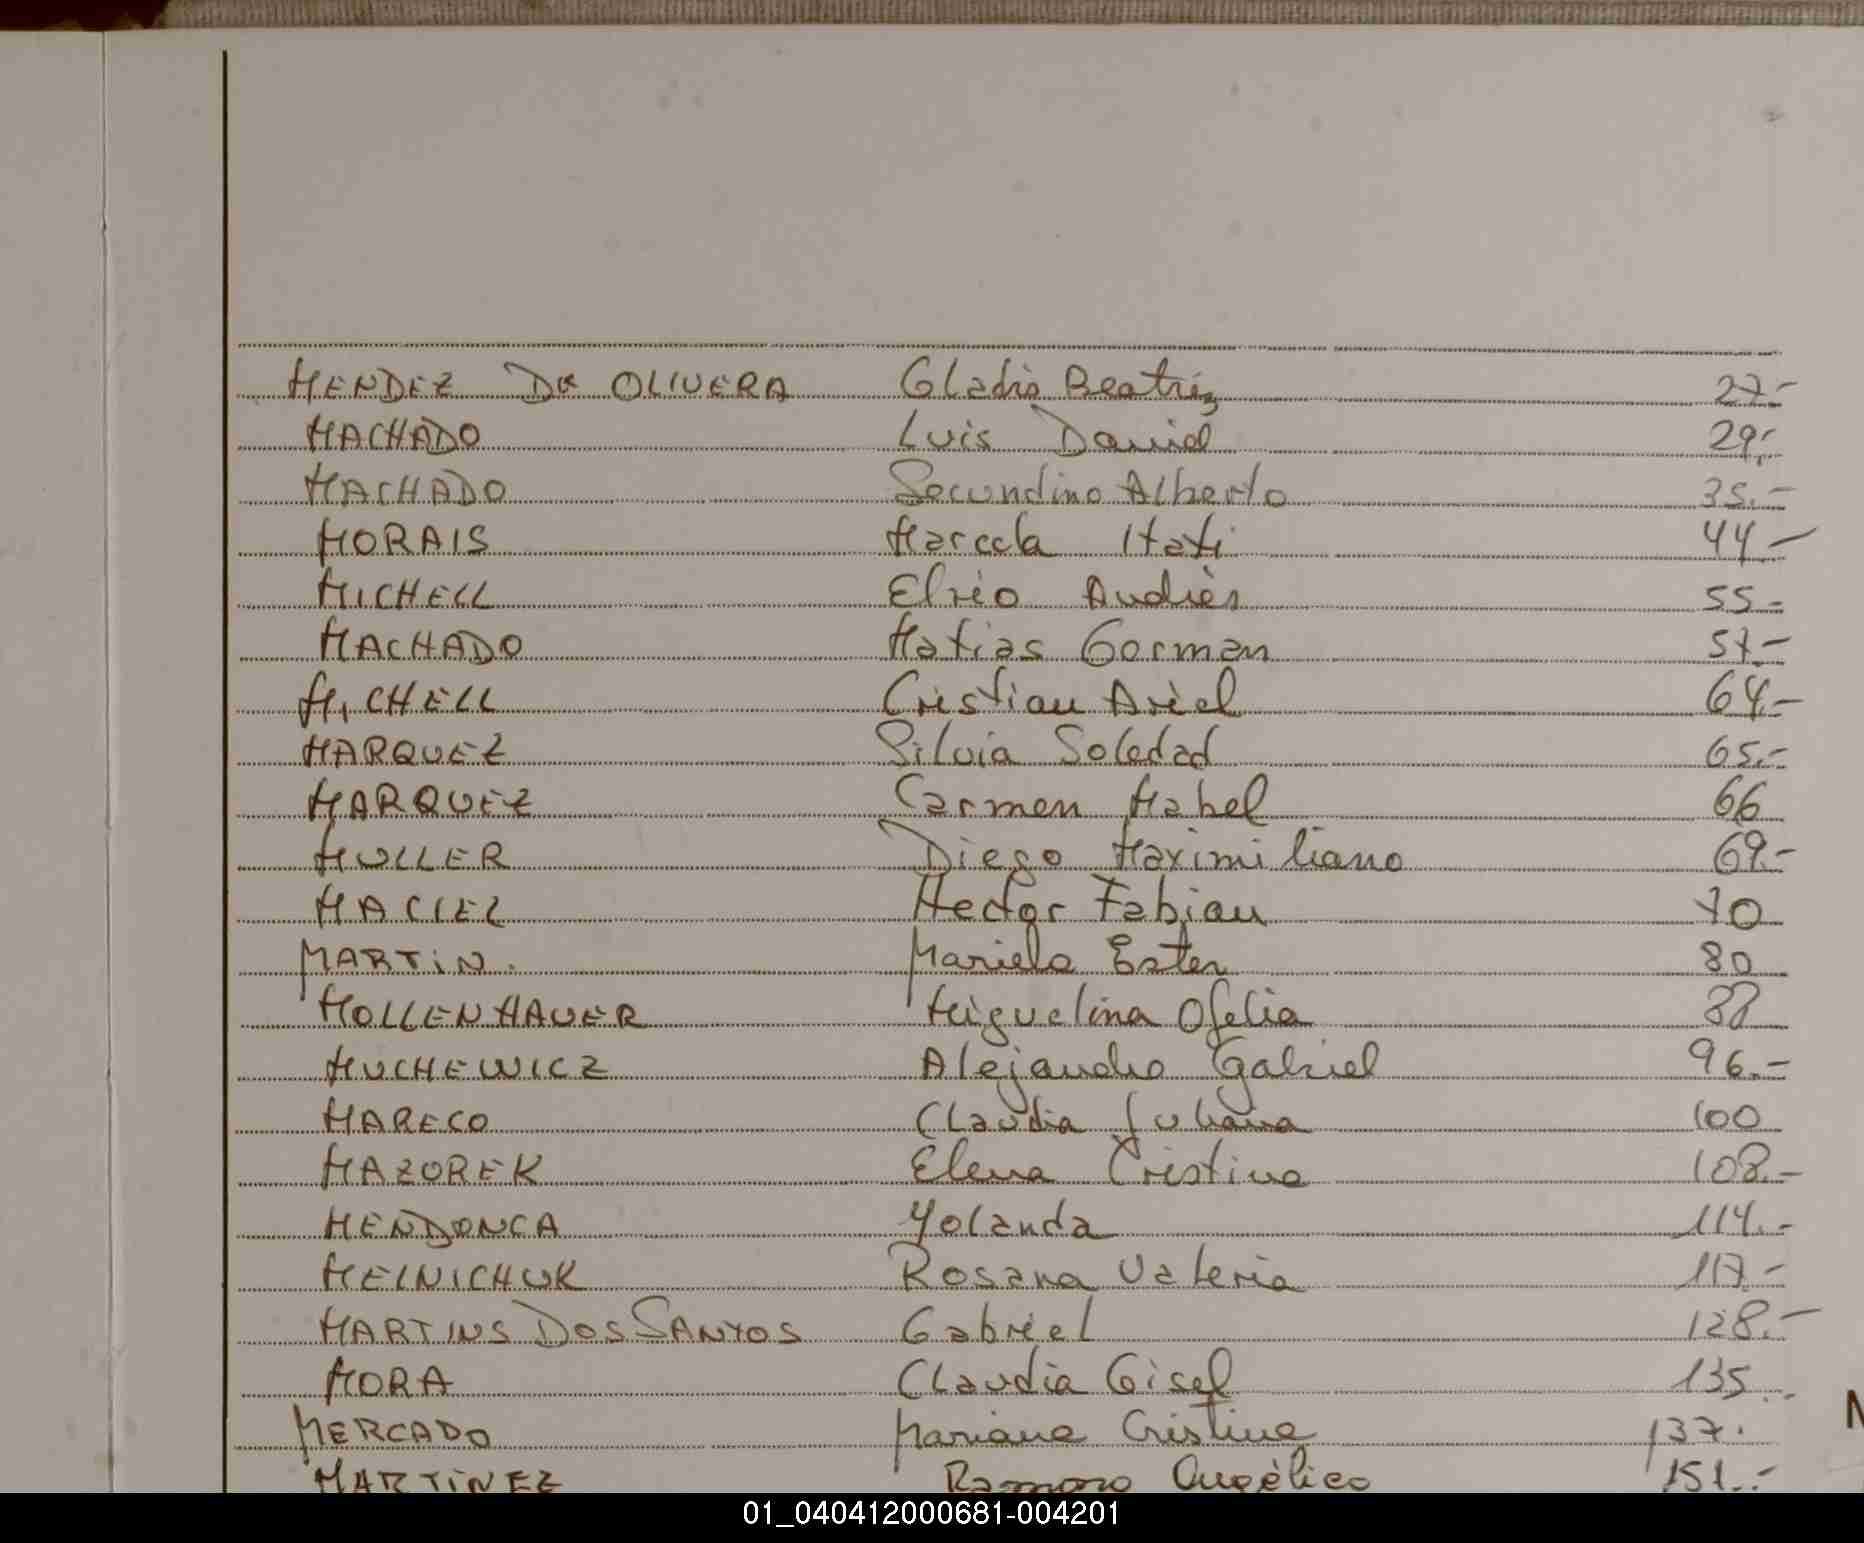 MENDEZ De OLIVERA Gladis Beatriz 27.-
MACHADO Luis Daniel 29.-
MACHADO Secundino Alberto 35.-
MORAIS Marcela Itati 44 -
MICHELL Elvio Andrés 55-
MACHADO Matias German 57.-
MICHELL Cristian Ariel 64.-
MARQUEZ Silvia Soledad 65.-
MARQUEZ Carmen Mabel 66
MULLER Diego Maximiliano 69.-
MACIEL Hector Fabian 70
MARTiN. Mariela Ester 80
MOLLENHAUER Miguelina Ofelia 88
MUCHEWICZ Alejandro Gabriel 96.-
MARECO Claudia Juliana 100
MAZOREK Elena Cristina 108.-
MENDONCA Yolanda 114.-
MELNICHUK Rosana Valeria 117.-
MARTINS DOS SANTOS Gabriel 128.-
MORA Claudia Gisel 135.
MERCADO Mariana Cristina 137.
MARTiNEZ Ramona 151.-
01_040412000681-004201